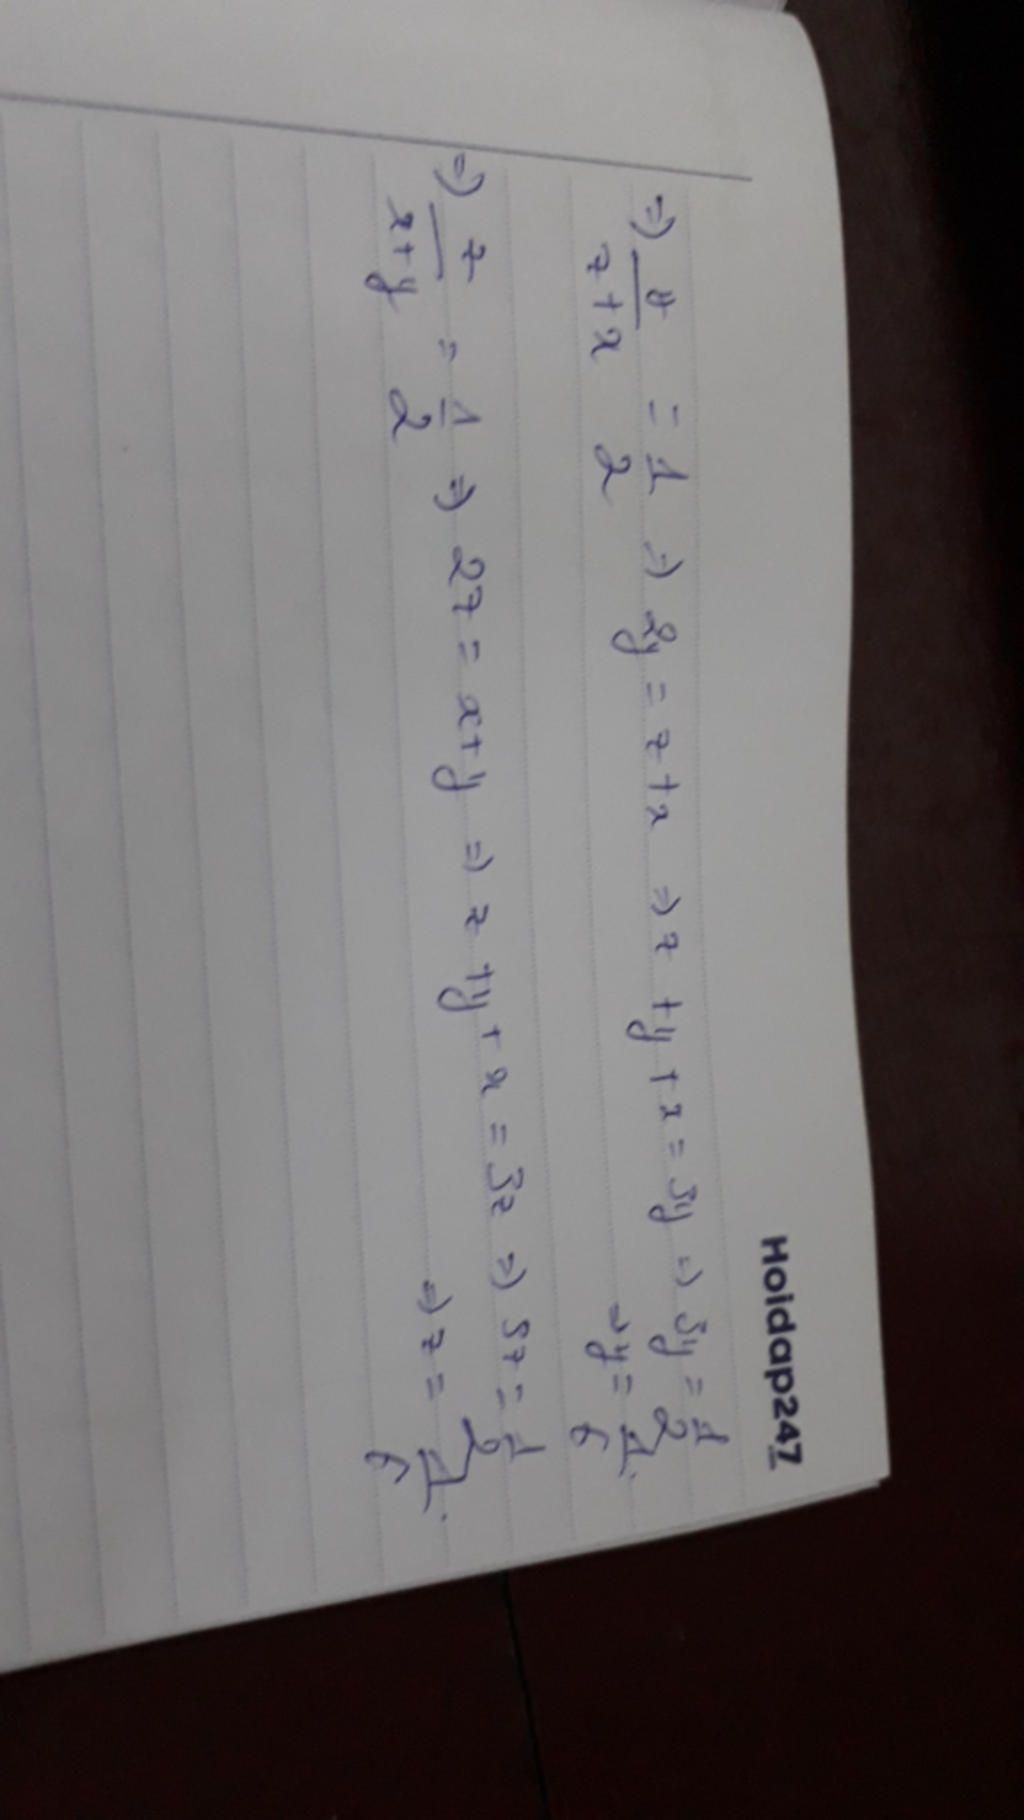 Hoidap247
=> y/(z+x) = 1/2 => 2y = z+x => z+y+x = 3y => 3y = 1/2
=> y = 1/6.
=> z/(x+y) = 1/2 => 2z = x+y => z+y+x = 3z => 3z = 1/2
=> z = 1/6.